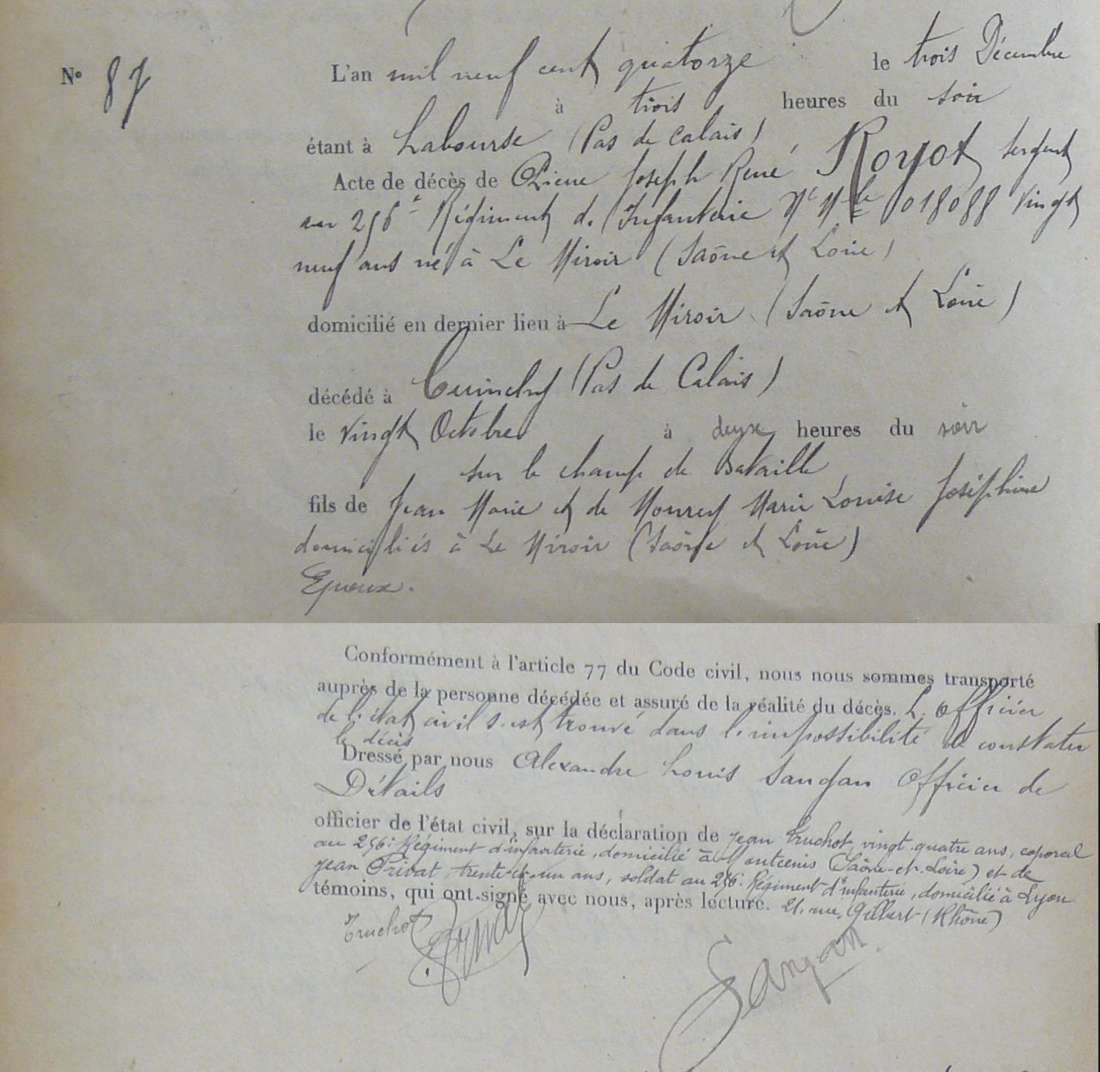 N° 87
L'an mil neuf cent quatorze le trois Décembre
à trois heures du soir
étant à Labourse (Pas de Calais)
Acte de décès de Pierre Joseph René Royot Sergent
au 256e Régiment d'Infanterie Nº Mle 018088 vingt
neuf ans né à Le Miroir (Saône et Loire)
domicilié en dernier lieu à Le Miroir (Saône et Loire)
décédé à Cuinchy (Pas de Calais)
le vingt Octobre à deux heures du soir
sur le champ de Bataille
fils de Jean Marie et de Mourey Marie Louise Joséphine
domiciliés à Le Miroir (Saône et Loire)
Epoux.
Conformément à l'article 77 du Code civil, nous nous sommes transporté
auprès de la personne décédée et assuré de la réalité du décès. L'officier
de l'état civil s'est trouvé dans l'impossibilité de constater
le décès
Dressé par nous Alexandre Louis Sangan Officier de
Détails
officier de l'état civil, sur la déclaration de Jean Truchot, vingt-quatre ans, caporal
au 256e Régiment d'infanterie, domicilié à Montcenis (Saône-et-Loire) et de
Jean Privat, trente et un ans, soldat au 256e Régiment d'infanterie, domicilié à Lyon
témoins, qui ont signé avec nous, après lecture. 21, rue Gilbert (Rhône)
Truchot Privat
Sangan